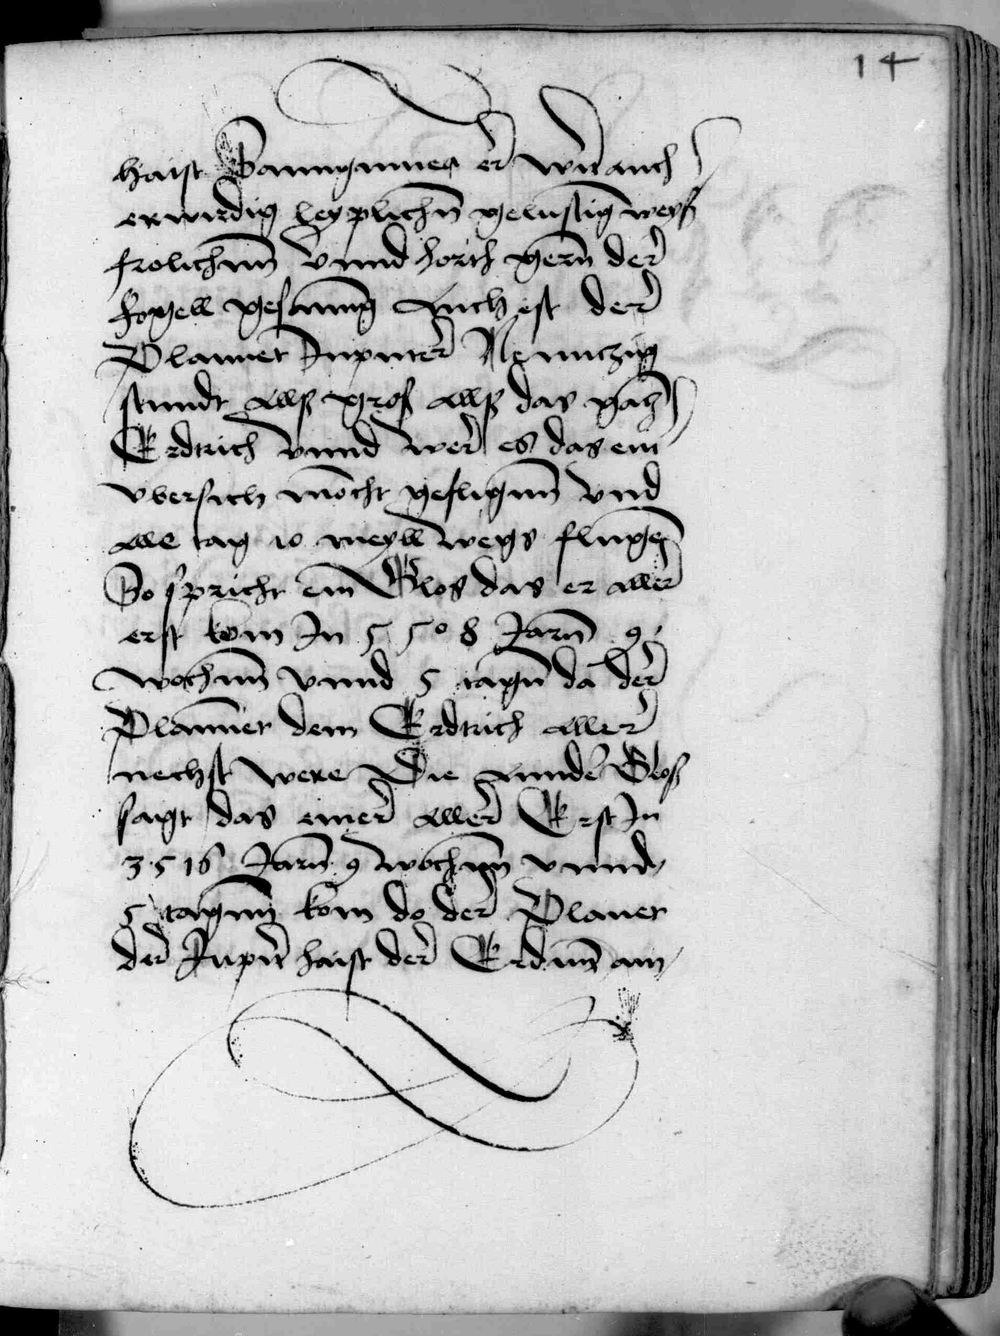 14
haist er wirt auch
erwirdig leyplichn gelustig weyß
frolichnn vnnd horth gern der
fogell gesanng Auch ist der
Plannet Jupiter Newnczig
stundt Alls groß Alls das gancz
Erdtrich vnnd wer es das ein
vbersich mocht gefligenn vnd
alle tag 10 meyll wegs flugen
So spricht ein Glos das er aller
erst kom Jn 5508 Jarn 9
wochnn vnnd 5 tagn da der
Plannet dem Erdtrich aller
nechst were Die annder Glos
sagt das einer aller Erst Jn
3516 Jarn 9 wochnn vnnd
5 tagenn kom do der Planet
der Jupiter haist der Erdenn am